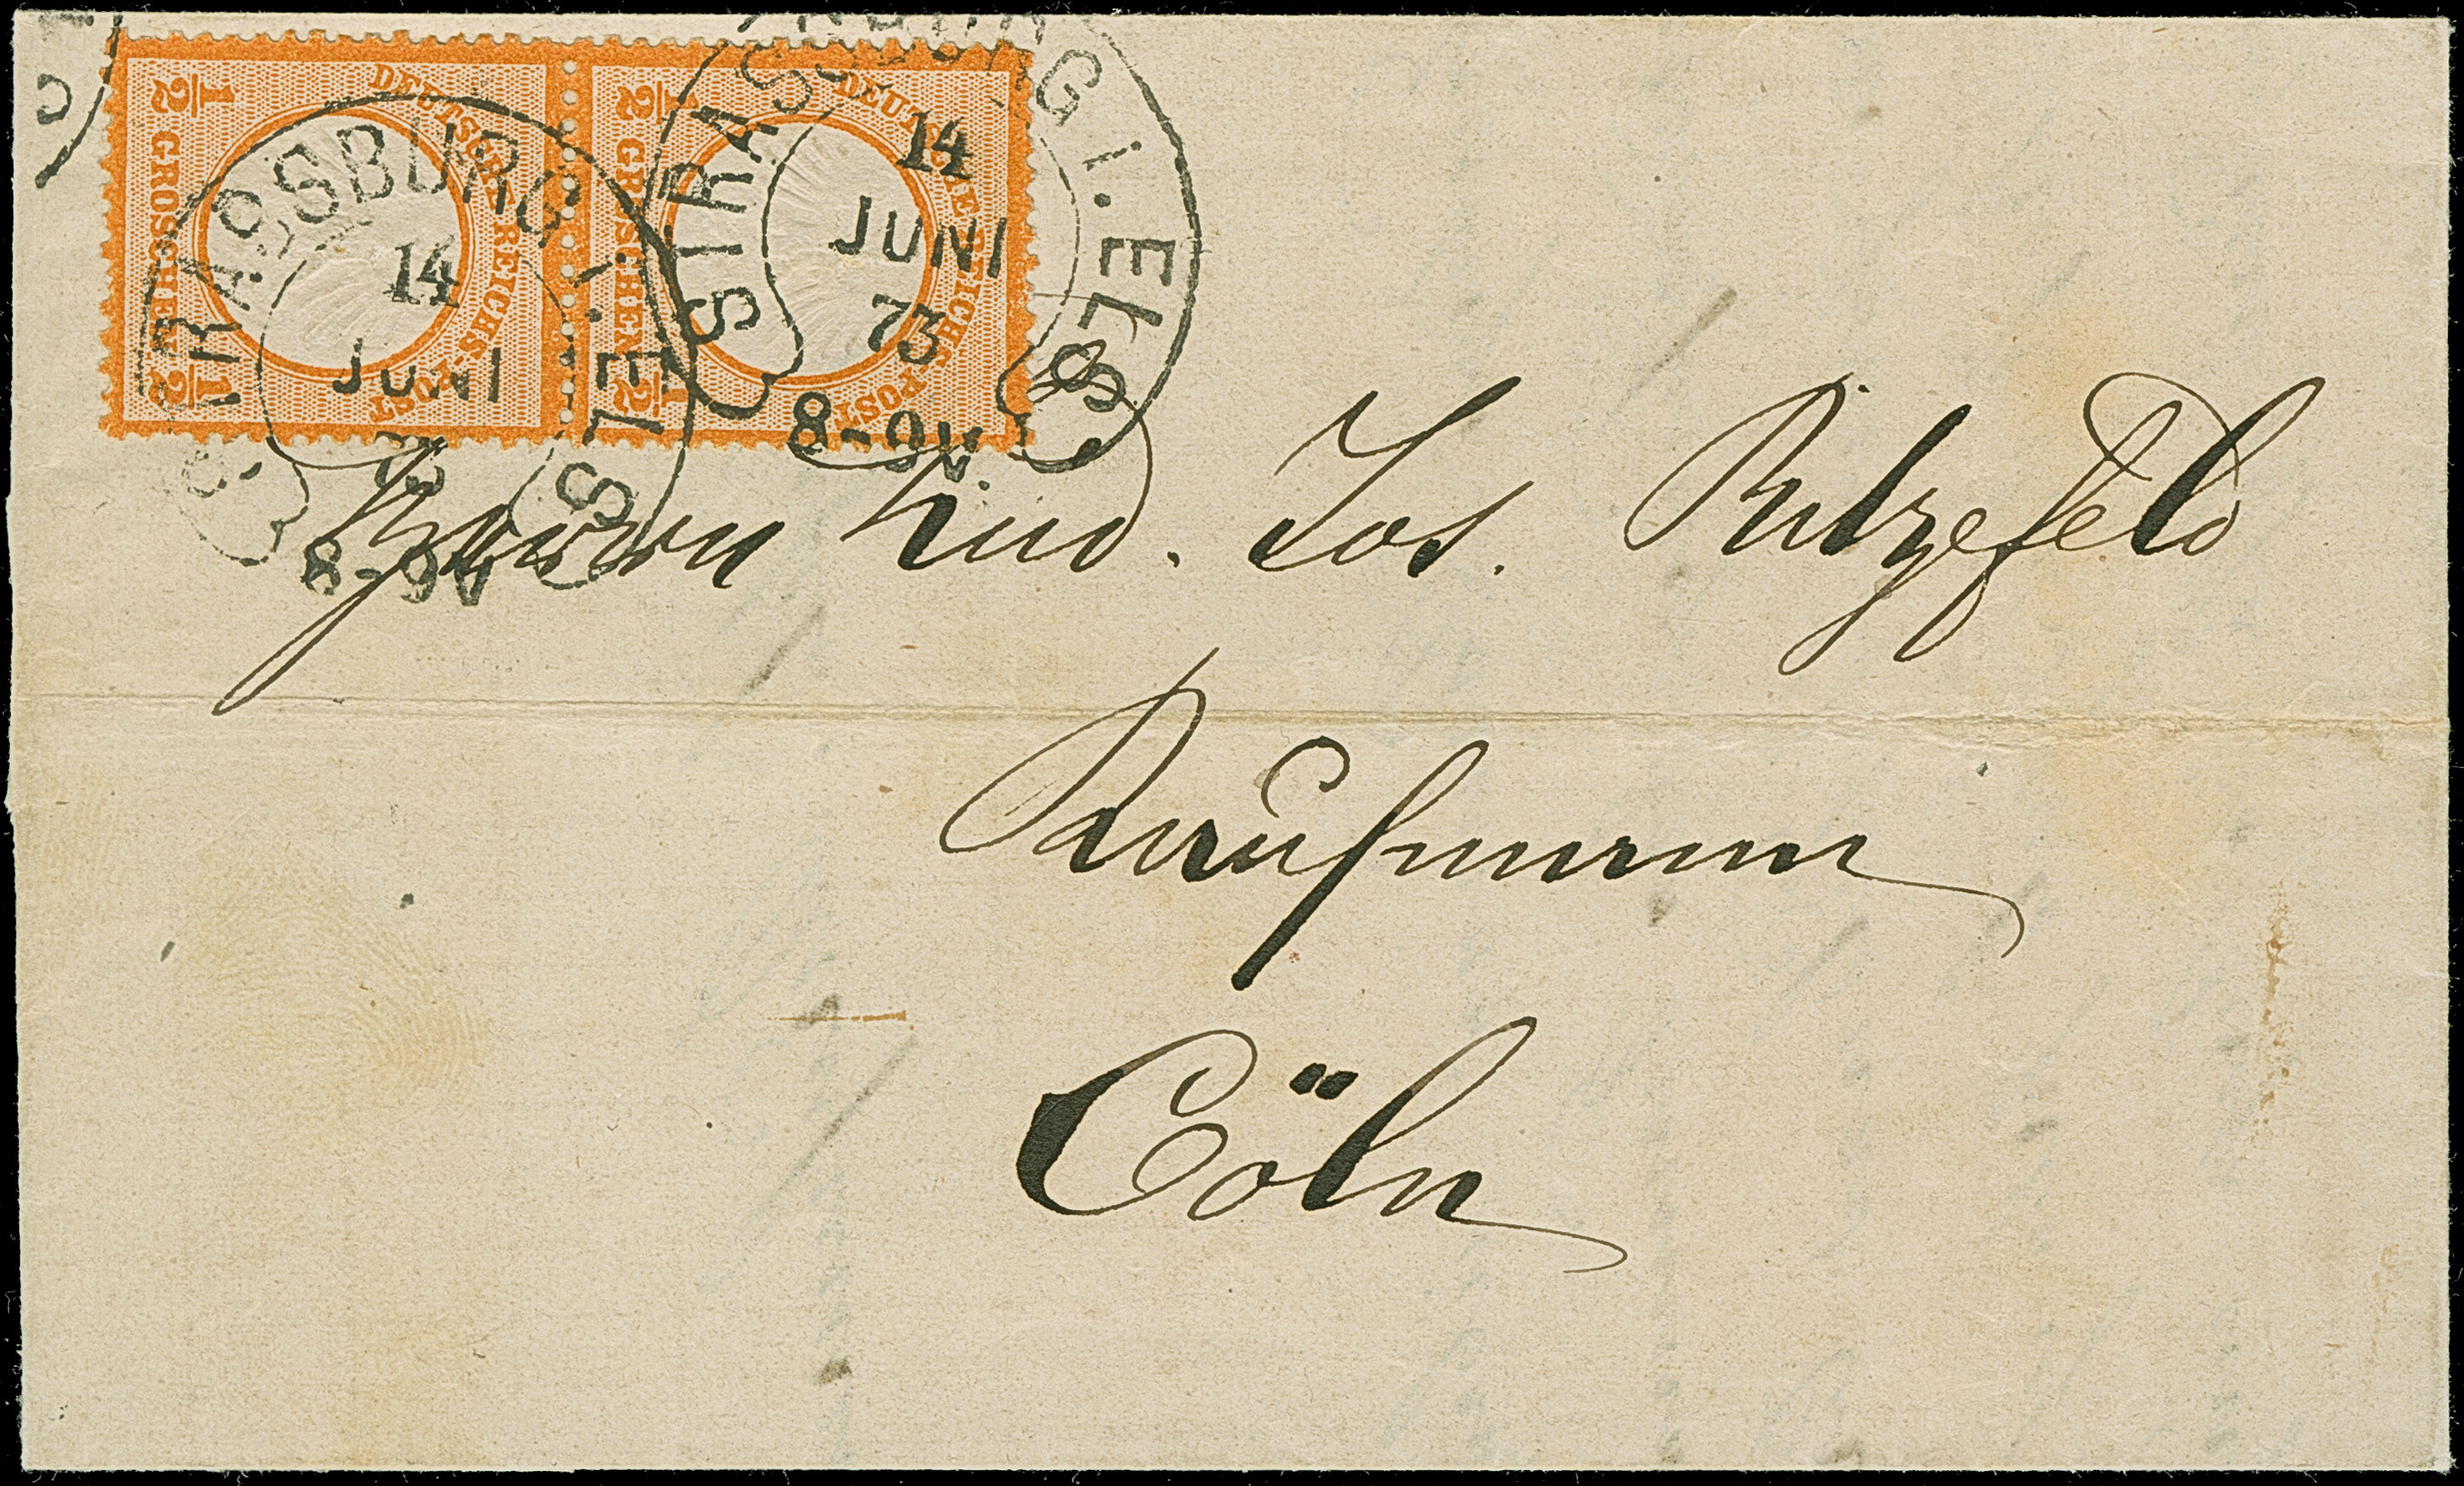 DEUTSCHE REICHS-POST
½ GROSCHEN ½
DEUTSCHE REICHS-POST
½ GROSCHEN ½
STRASSBURG I. ELS
14
JUNI
73
8-9V
STRASSBURG I. ELS.
14
JUNI
73
8-9V.
Herrn Lud. Jos. Ritzefeld
Kaufmann
Cöln